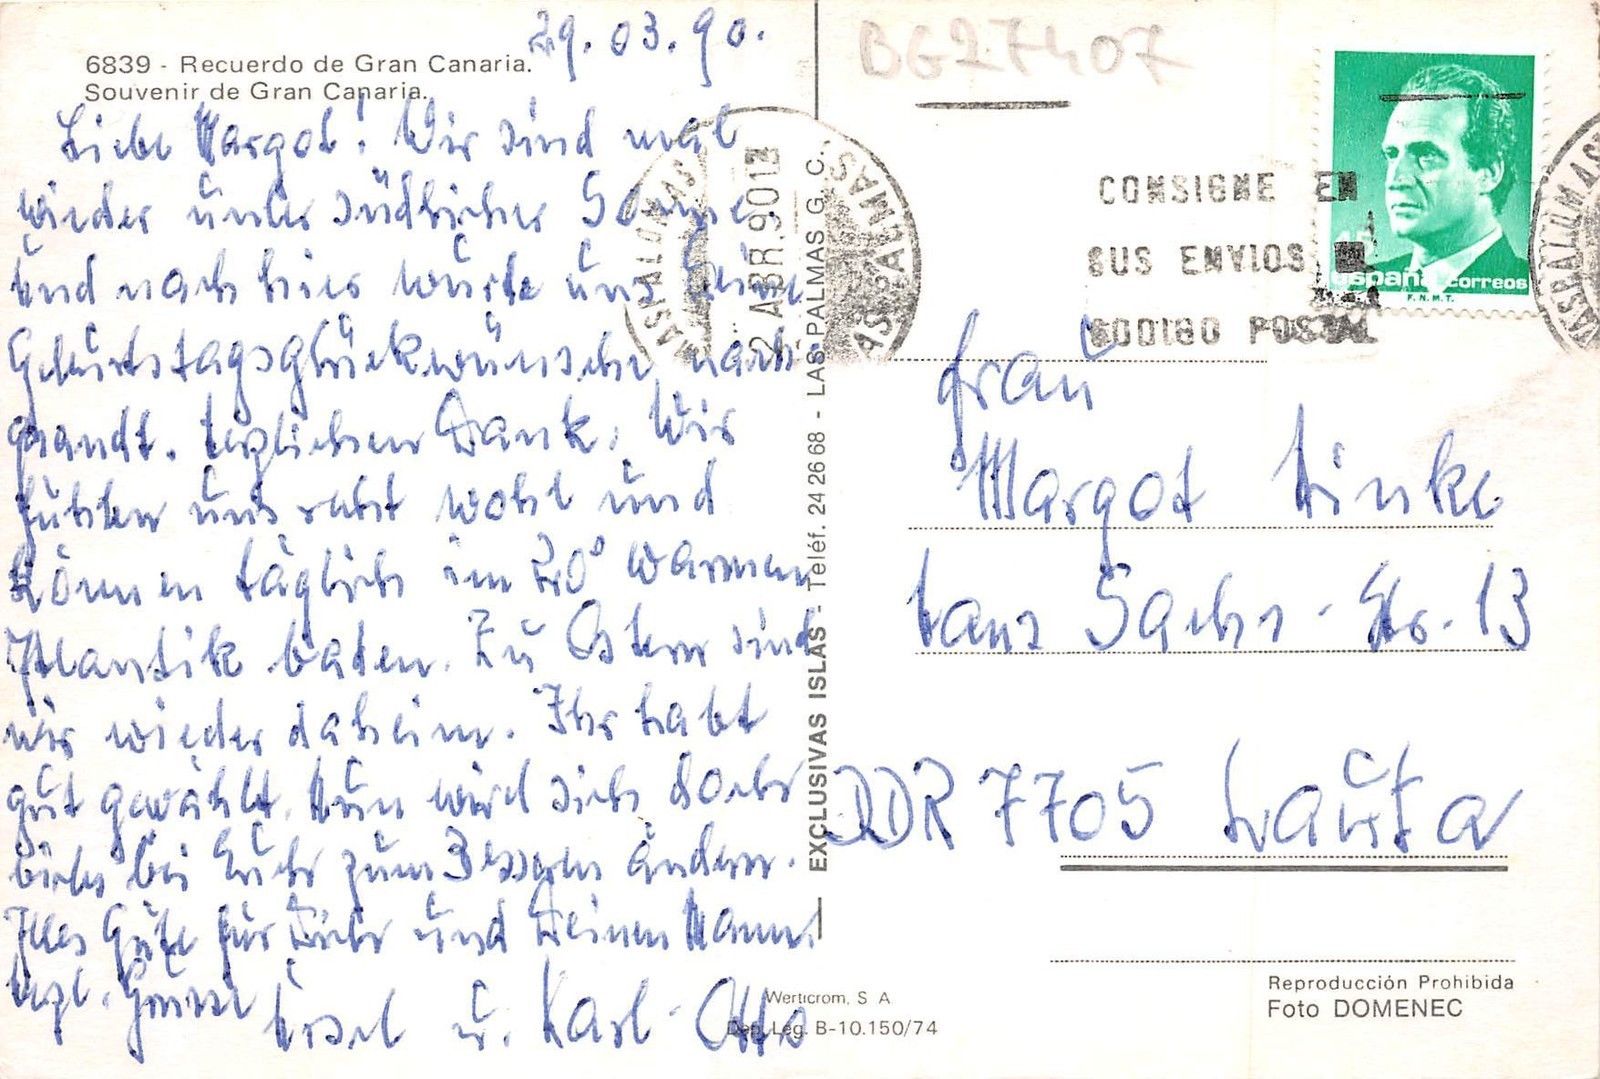 29.03.90.
6839 - Recuerdo de Gran Canaria.
Souvenir de Gran Canaria.
Liebe Margot! Wir sind mal
wieder unter südlicher Sonne
und nach hier wurde uns Deine
Geburtstagsglückwünsche nach-
gesandt. Herzlichen Dank. Wir
fühlen uns recht wohl und
können täglich im 20° warmen
Atlantik baden. Zu Ostern sind
wir wieder daheim. Ihr habt
gut gewählt. Nun wird sich doch
bei Euch zum Besseren ändern.
Alles Gute für Dich und Deinen Mann
herzl. Grüsse
Ursel u. Karl-Otto
BG27407
CONSIGNE EN
SUS ENVIOS EL
CODIGO POSTAL
MASPALOMAS
2 ABR. 90 12
LAS PALMAS
MASPALOMAS
España correos
F.N.M.T.
EXCLUSIVAS ISLAS - Teléf. 24 26 68 - LAS PALMAS G. C.
Frau
Margot Linke
Hans Sachs-Str. 13
DDR 7705 Lauta
Werticrom, S A
Dep. Leg. B-10.150/74
Reproducción Prohibida
Foto DOMENEC